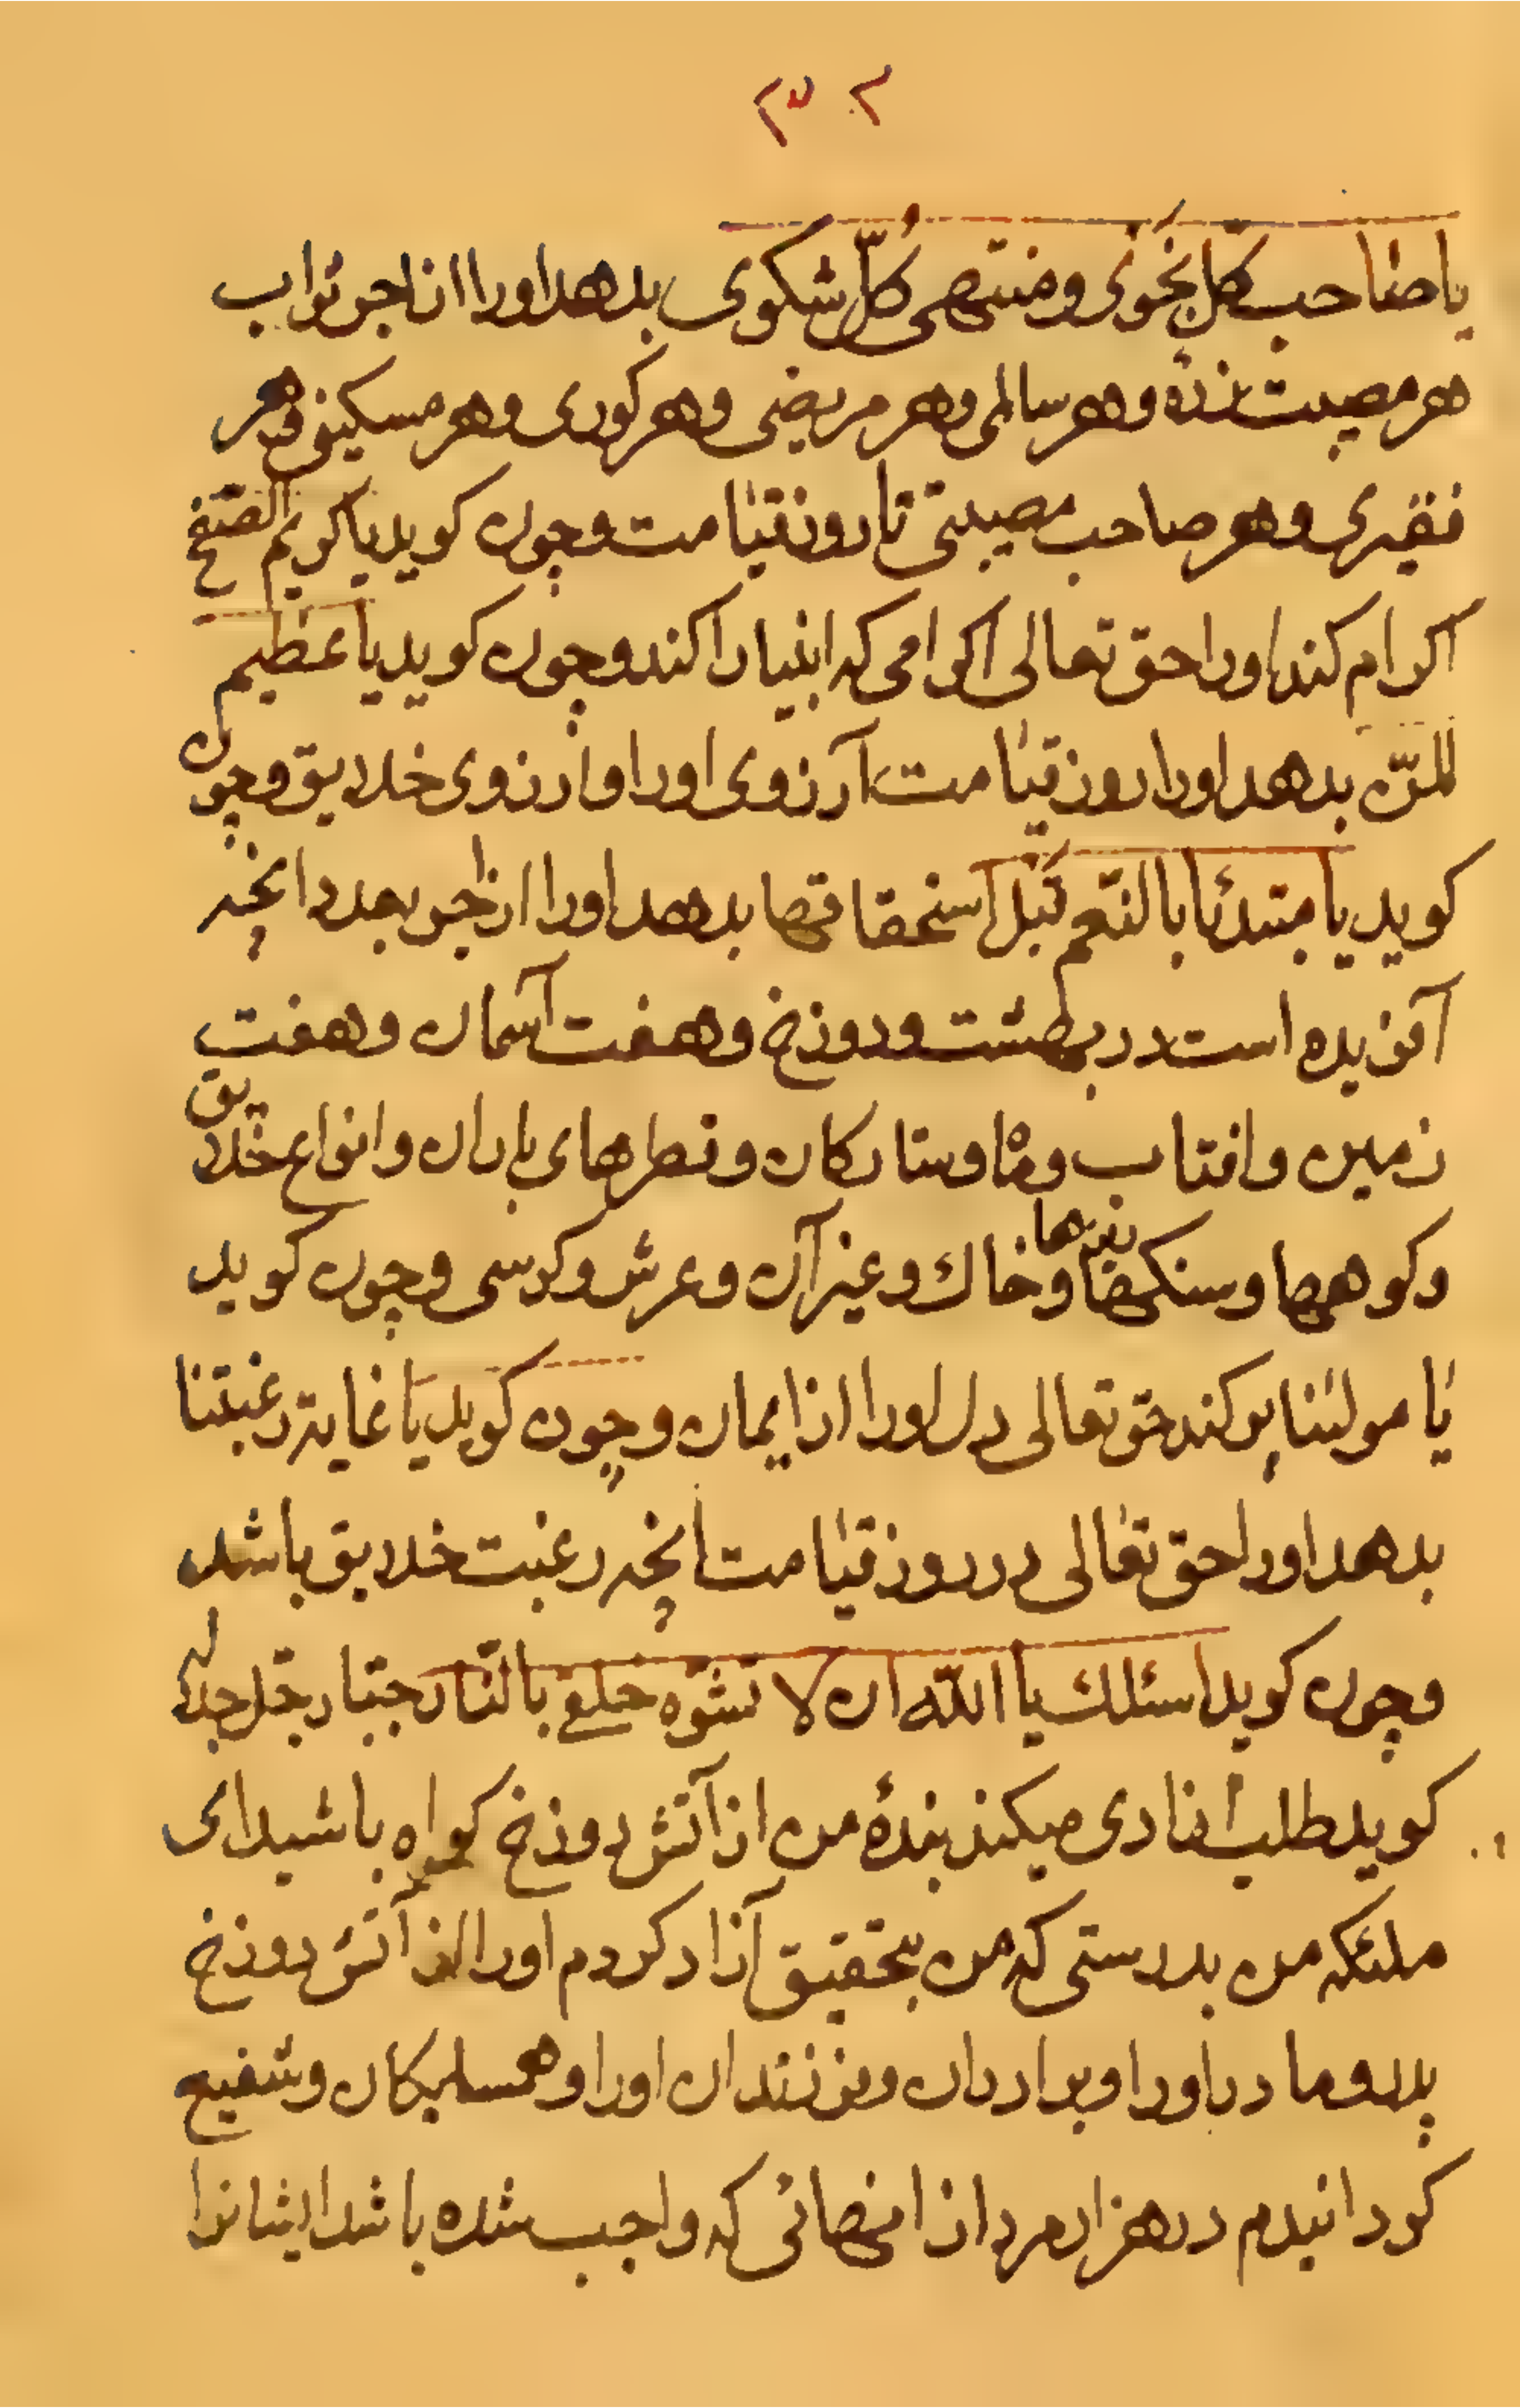 یا صاحب کلّ نجوی و منتهی کُلّ شکوی بدهد او را از اجر ثواب
هر مصیبت زدهٔ و هر سالمی و هر مریضی و هر کوری و هر مسکینی و هر
فقیری و هر صاحب مصیبتی تا روز قیامت و چون کوید یا کریم الصّفح
اکرام کند او را حق تعالی اکرامی که انبیا را کند و چون کوید یا عظیم
المنّ بدهد او را روز قیامت آرزوی او را و آرزوی خلایق و چون
کوید یا مبتدئا بالنّعم قبل استحقاقها بدهد او را از اجر بعدد آنچه
آفریده است در بهشت و دوزخ و هفت آسمان و هفت
زمین و افتاب و ماه و ستارکان و قطرهای باران و انواع خلایق
و کوهها و سنکها و خاك و غیر آن و عرش و کرسی و چون کوید
یا مولینا پر کند حق تعالی دل او را از ایمان و چون کوید یا غایة رغبتنا
بدهد او را حق تعالی در روز قیامت آنچه رغبت خلایق باشد
و چون کوید اسئلك یا اللّه ان لا تشوّه خلقی بالنّار جبّار جلّ جلاله
کوید طلب ازادی میکند بندهٔ من از آتش دوزخ کواه باشید ای
ملئکه من بدرستی که من بتحقیق آزاد کردم او را از آتش دوزخ
پدر و مادر او را و برادران و فرزندان او را و همسایکان و شفیع
کردانیدم در هزار مرد از انهائی که واجب شده باشد ایشانرا